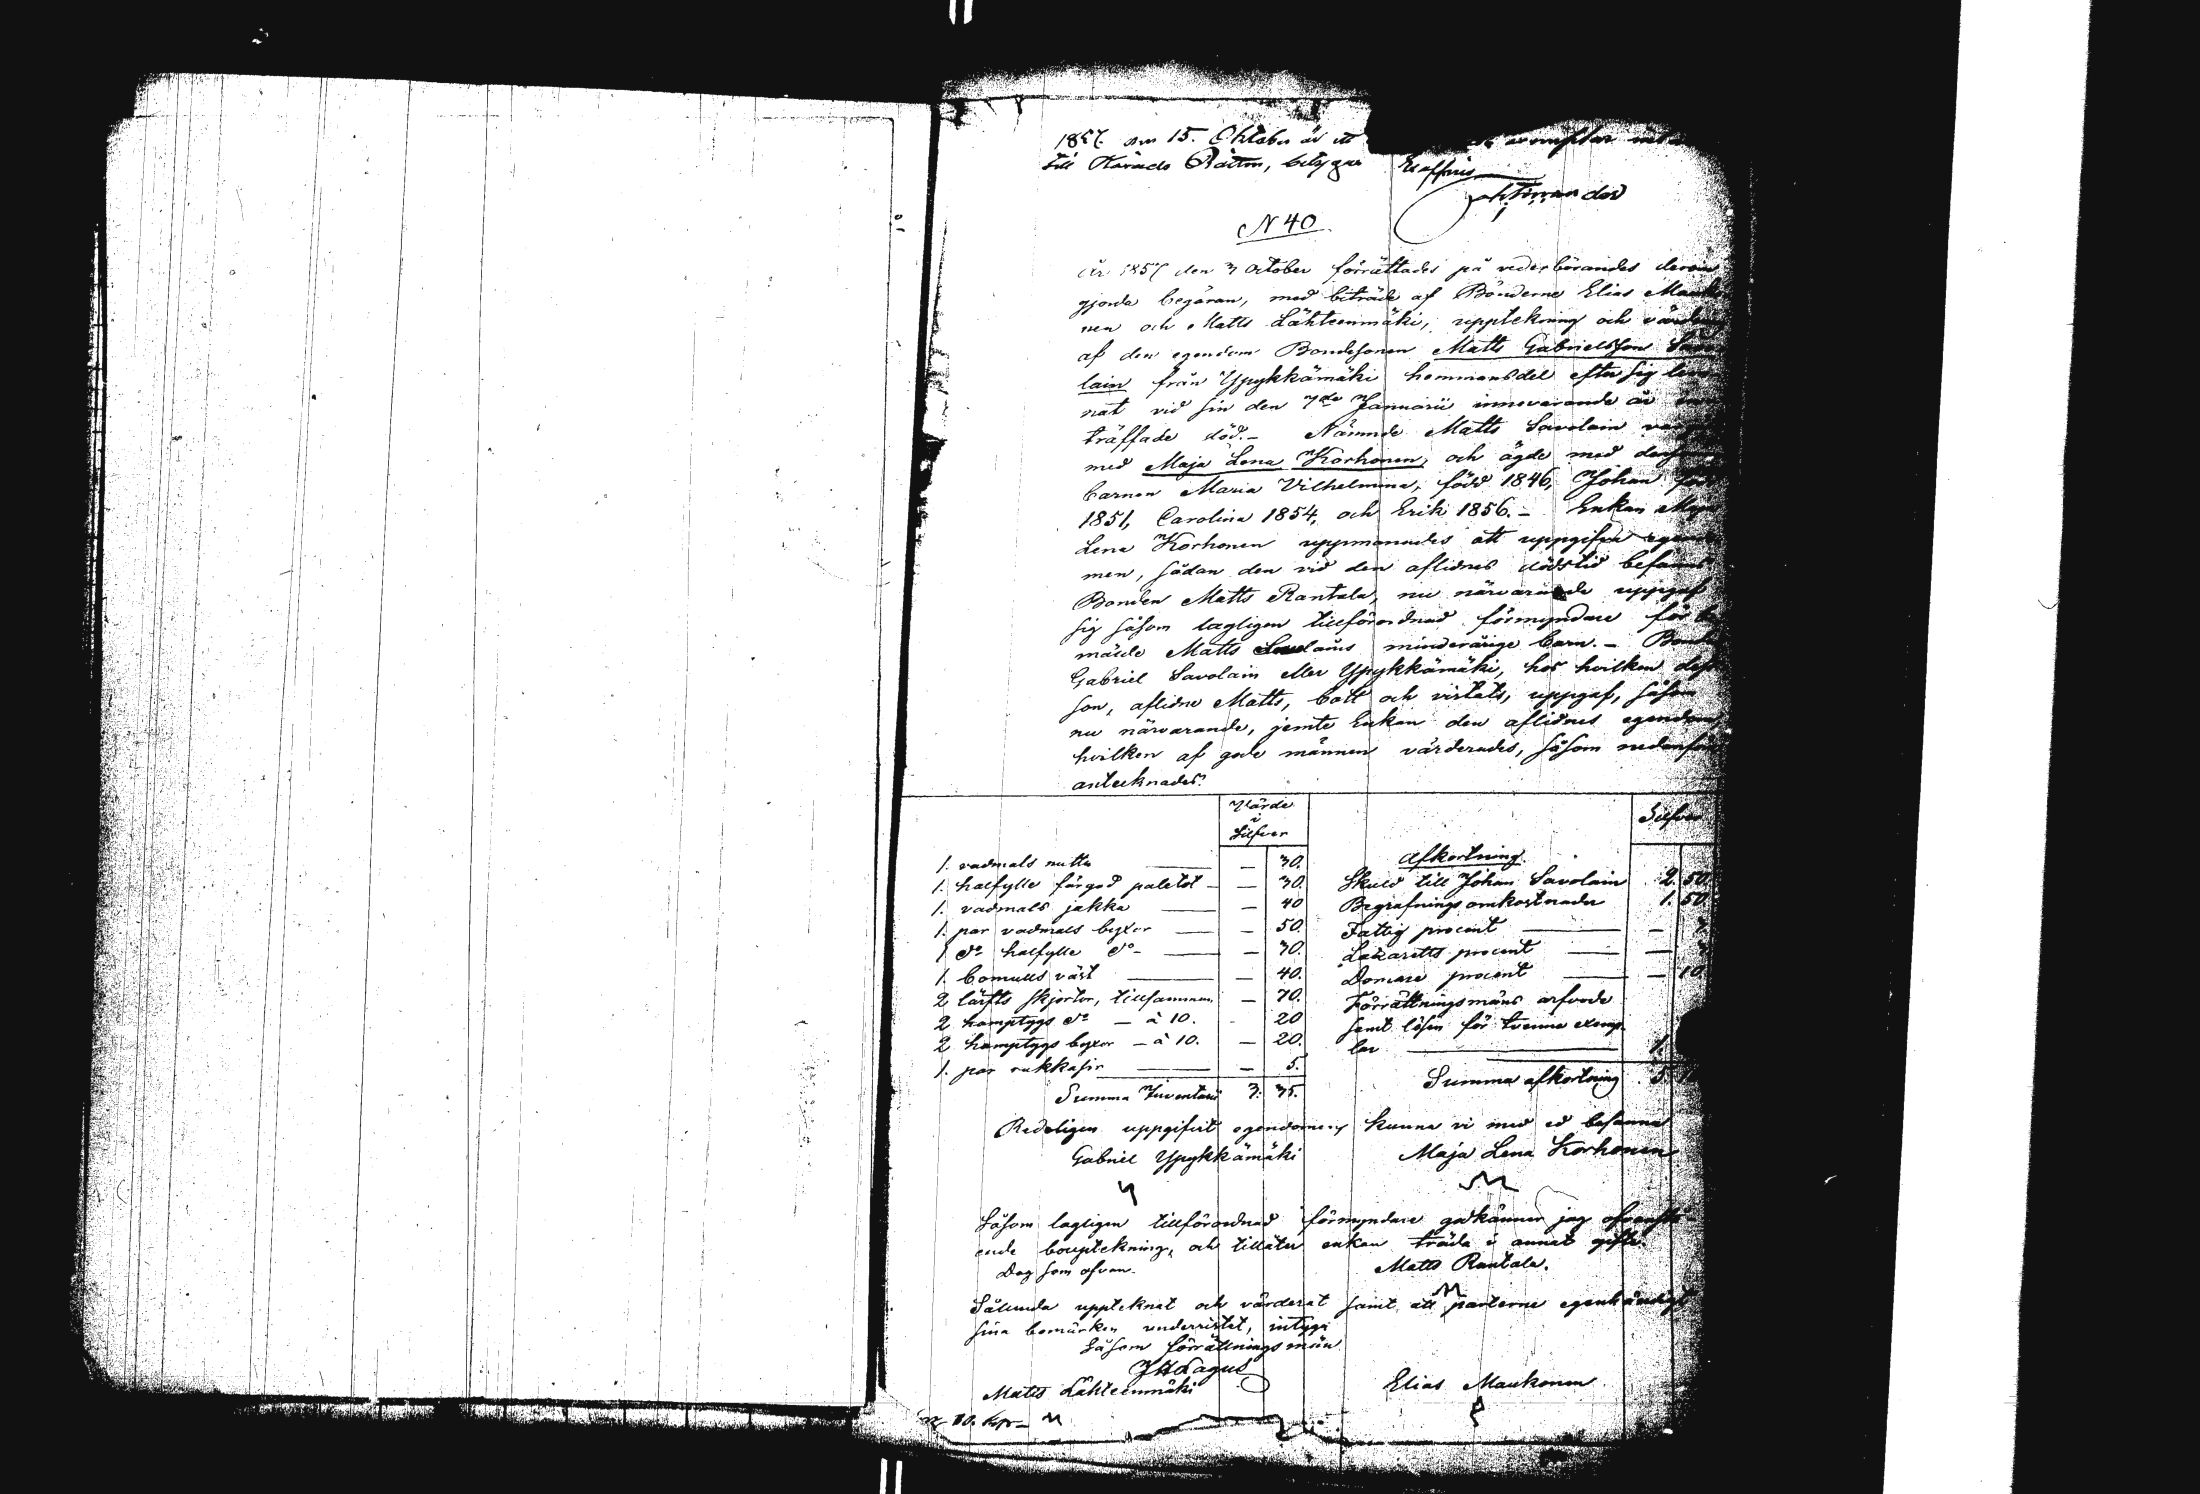 1857. den 15. Oktober är ett exemplar
till Härads Rätten, betygar
N 40
År 1857 den 3 October förrättades på vederbörandes derom
gjorda begäran, med biträde af Bönderne Elias Mauko
nen och Matts Lähteenmäki, uppteckning och värdering
af den egendom Bondesonen Matts Gabrielsson Savo
lain från Ypykkämäki hemmansdel efter sig lem
nat vid sin den 7de Januarii innevarande år
träffade död. – Nämnde Matts Savolain
med Maja Lena Korhonen, och ägde med
barnen Maria Vilhelmina, född 1846, Johan född
1851, Carolina 1854, och Erik 1856. – Enkan Maja
Lena Korhonen uppmanades att uppgifva egendo
men, sådan den vid den aflidnes dödstid befanns
Bonden Matts Rantala, nu närvarande uppgaf
sig såsom lagligen tillförordnad förmyndare för be
mälde Matts Savolains minderårige barn. – Bonden
Gabriel Savolain eller Ypykkämäki, hos hvilken dess
son, aflidne Matts, bott och vistats, uppgaf, såsom
nu närvarande, jemte Enkan den aflidnes egendom,
hvilken af gode männen värderades, såsom nedanföre
antecknades:
Värde i Silfver
Silfver
1. vadmals mutta — 30.
1. halfylle färgad paletot — 30.
1. vadmals jakka — 40
1. par vadmals byxor — 50.
1 do halfylle do — 30.
1. bomulls väst — 40.
2 lärfts skjortor, tillsammans — 70.
2 hamptygs do — à 10. 20
2 hamptygs byxor — à 10. — 20.
1. par rukkasir — 5.
Summa Inventarii 3. 35.
Afkortning
Skuld till Johan Savolain 2. 50.
Begrafnings omkostnader 1. 50.
Fattig procent —
Lazaretts procent —
Domare procent — 10
Förrättningsmäns arfvode
samt lösen för tvenne exemp-
lar 1.
Summa afkortning 5.
Redeligen uppgifvit egendomen, kunna vi med ed besanna
Gabriel Ypykkämäki Maja Lena Korhonen
Såsom lagligen tillförordnad förmyndare godkänner jag ofvanstå-
ende bouppteckning, och tillåter enkan träda i annat gifte.
Dag som ofvan. Matts Rantala.
Sålunda upptecknat och värderat samt, att parterne egenhändigt
sina bomärken underristat, intyga
Såsom förrättningsmän
JH Lagus
Matts Lähteenmäki Elias Maukonen
10. kop –